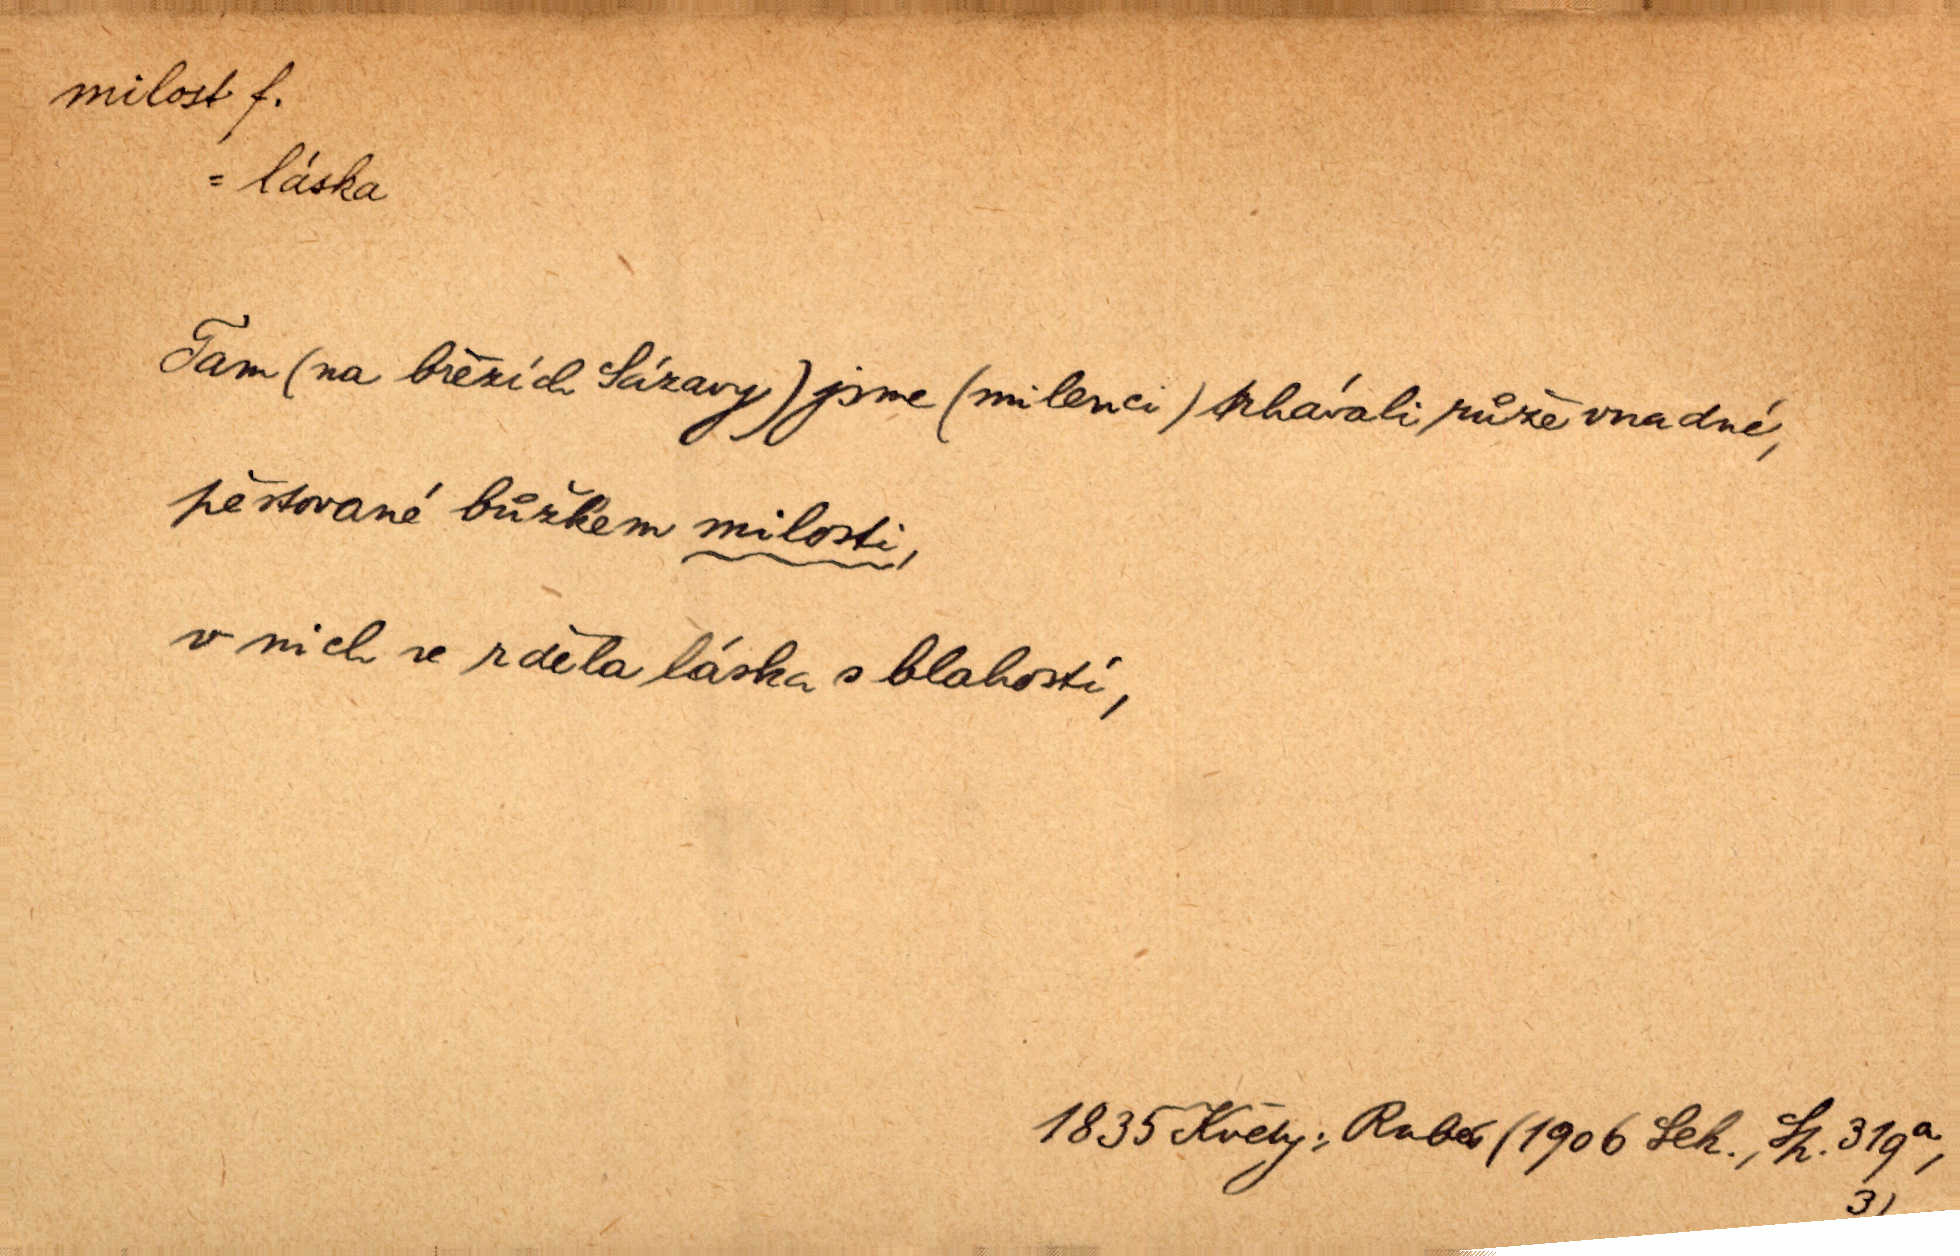 milost f.
= láska
Tam (na březích Sázavy) jsme (milenci) trhávali růže vnadné,
pěstované bůžkem milosti,
v nich se rděla láska s blahostí,
1835 Květy; Rubeš (1906 Seb., Sp. 319a,
3)